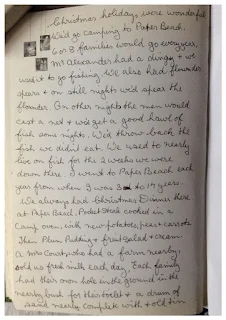 Christmas holidays, were wonderful
We'd go camping to Paper Beach,
6 or 8 families would go every year,
Mr Alexander had a dingy + we
used it to go fishing. We also had flounder
spears + on still nights we'd spear the
flounder. On other nights the men would
cast a net + we'd get a good hawl of
fish some nights. We'd throw back the
fish we didn't eat. We used to nearly
live on fish for the 2 weeks we were
down there. I went to Paper Beach each
year from when I was 3 to 19 years.
We always had Christmas Dinner there
at Paper Beach. Pocket Steak cooked in a
Camp oven, with new potatoes, peas + carrots
Then Plum Pudding + fruit salad + cream
a Mrs Coward who had a farm nearby,
sold us fresh milk each day. Each family
had their own hole in the ground in the
nearby bush for their toilet + a drum of
sand nearby complete with + old tin